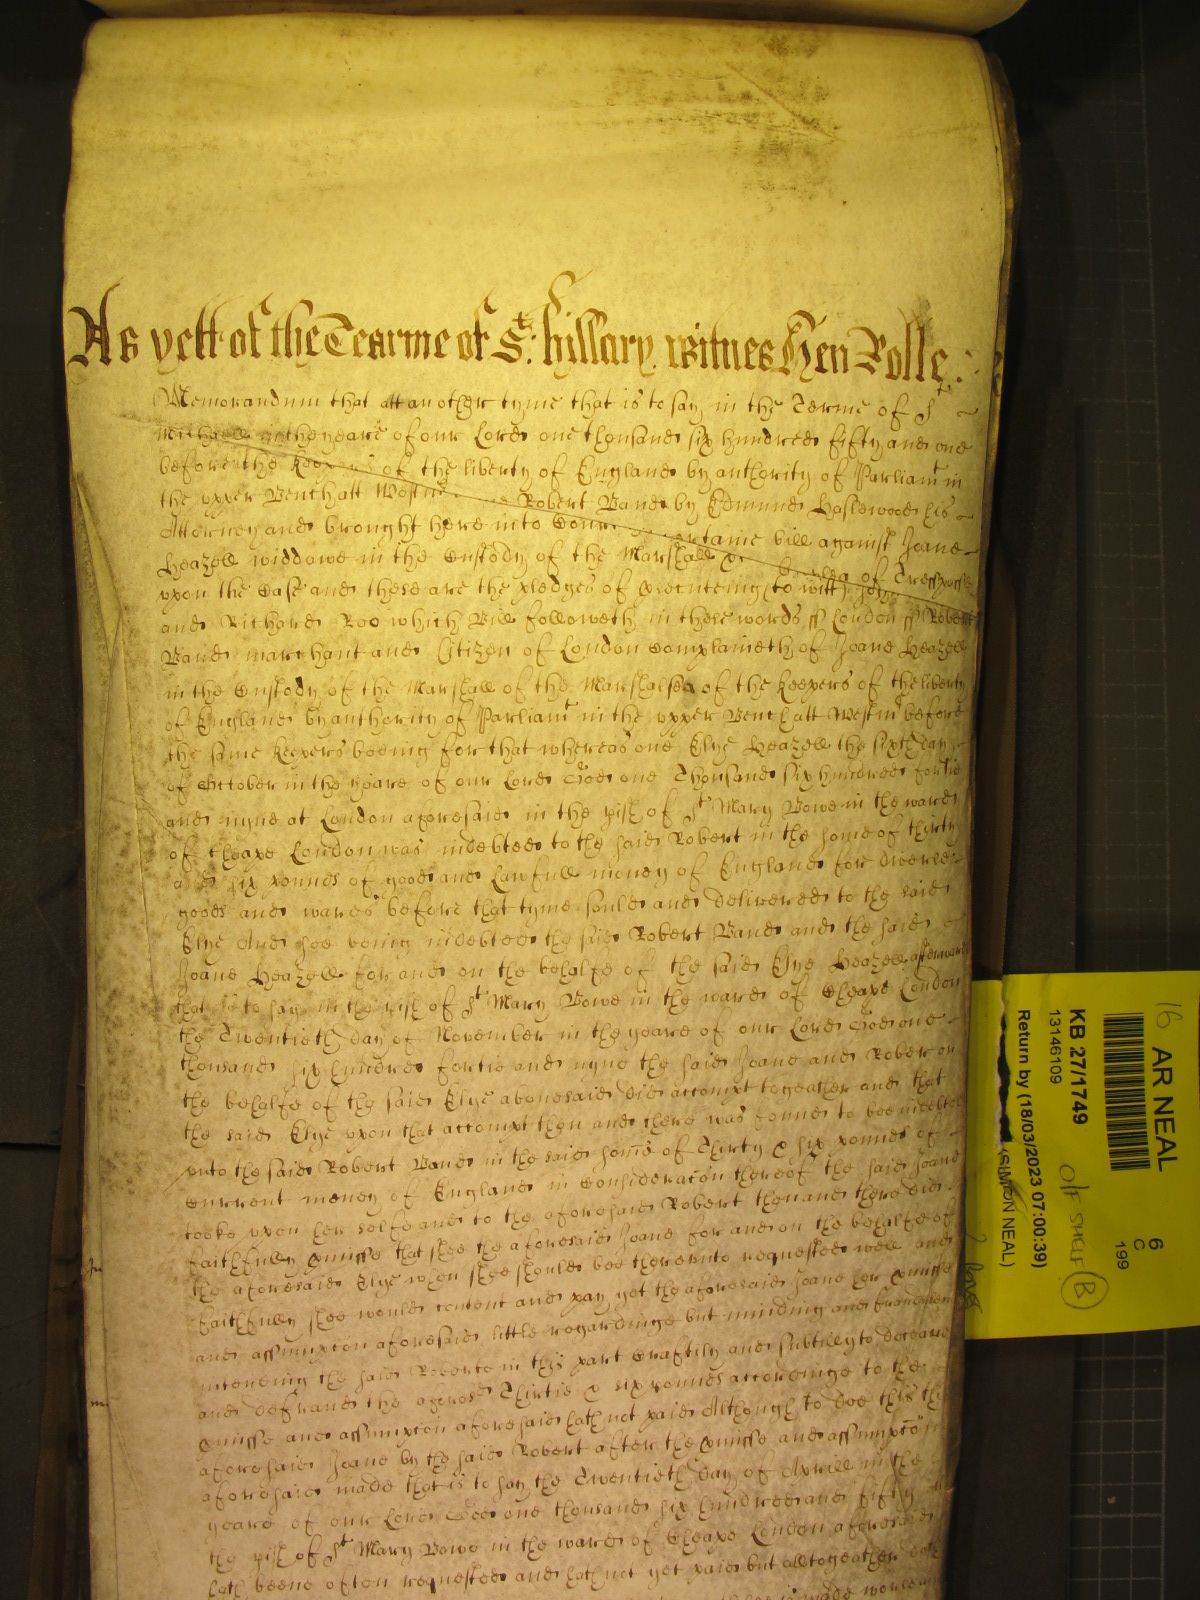 As yett of the Tearme of St: hillary witnes Hen Rolle
Memorandum that att another tyme that is to say in the Terme of St
Michaell in the yeare of our Lord one thousand six hundred fifty and one
before the Keepers of the liberty of England by authority of Parliamt in
the upper Bench att Westm Robert Band by Edmund Haslewood his
Attorney and brought here into Court certaine bill against Joane
Heazell widdowe in the Custody of the Marshall &c of Trespasse
upon the Case and there are the pledges of prosecuteing (to witt) John
and Richard Roo which Bill followeth in these words ss London ss Robert
Band marchant and Citizen of London Complaineth of Joane Heazell
in the Custody of the Marshall of the Marshalsea of the Keepers of the liberty
of England by authority of Parliamt in the upper Bench att Westm before
the same Keepers beeing for that whereas one Elye Heazell the sixth day
of October in the yeare of our Lord God one Thousand six hundred fortie
and nyne at London aforesaid in the pish of St Mary Bowe in the ward
of Cheape London was indebted to the said Robert in the some of thirty
and six pounds of good and Lawfull money of England for diverse
goods and wares before that tyme sould and delivered to the said
Elye And soe being indebted the said Robert Band and the said
Joane Heazell for and on the behalfe of the said Elye Heazell afterward
that is to say in the pish of St Mary Bowe in the ward of Cheape London
the Twentieth day of November in the yeare of our Lord God one
thousand six hundred fortie and nyne the said Joane and Robert on
the behalfe of the said Elye abovesaid did accompt togeather and that
the said Elye upon that accompt then and there was found to bee indebted
unto the said Robert Band in the said some of Thirty & six pounds of
Current money of England in Consideracon thereof the said Joane
tooke upon her selfe and to the aforesaid Robert then and there did
faithfully pmisse that shee the aforesaid Joane for and on the behalfe of
the aforesaid Elye when shee should bee thereunto requested well and
faithfully shee would content and pay yet the aforesaid Joane her pmisse
and assumpcon aforesaid little regardinge but minding and fraudulently
intending the said Roberte in this part Craftily and subtilly to deceave
and defraud the aforesd Thirtie & six pounds accordinge to the
pmisse and assumpcon aforesaid hath not paid Although to doe this the
aforesaid Joane by the said Robert after the pmisse and assumpcon
aforesaid made that is to say the Twentieth day of Aprill in the
yeare of our Lord God one thousand six hundred and fifty att
the pish of St Mary Bowe in the ward of Cheape London aforesaid
hath beene often requested and hath not yet paid but alltogeather
16 AR NEAL
KB 27/1749
13146109
Return by (18/03/2023 07:00:39)
(SIMON NEAL)
O/F SHELF B
6
C
199